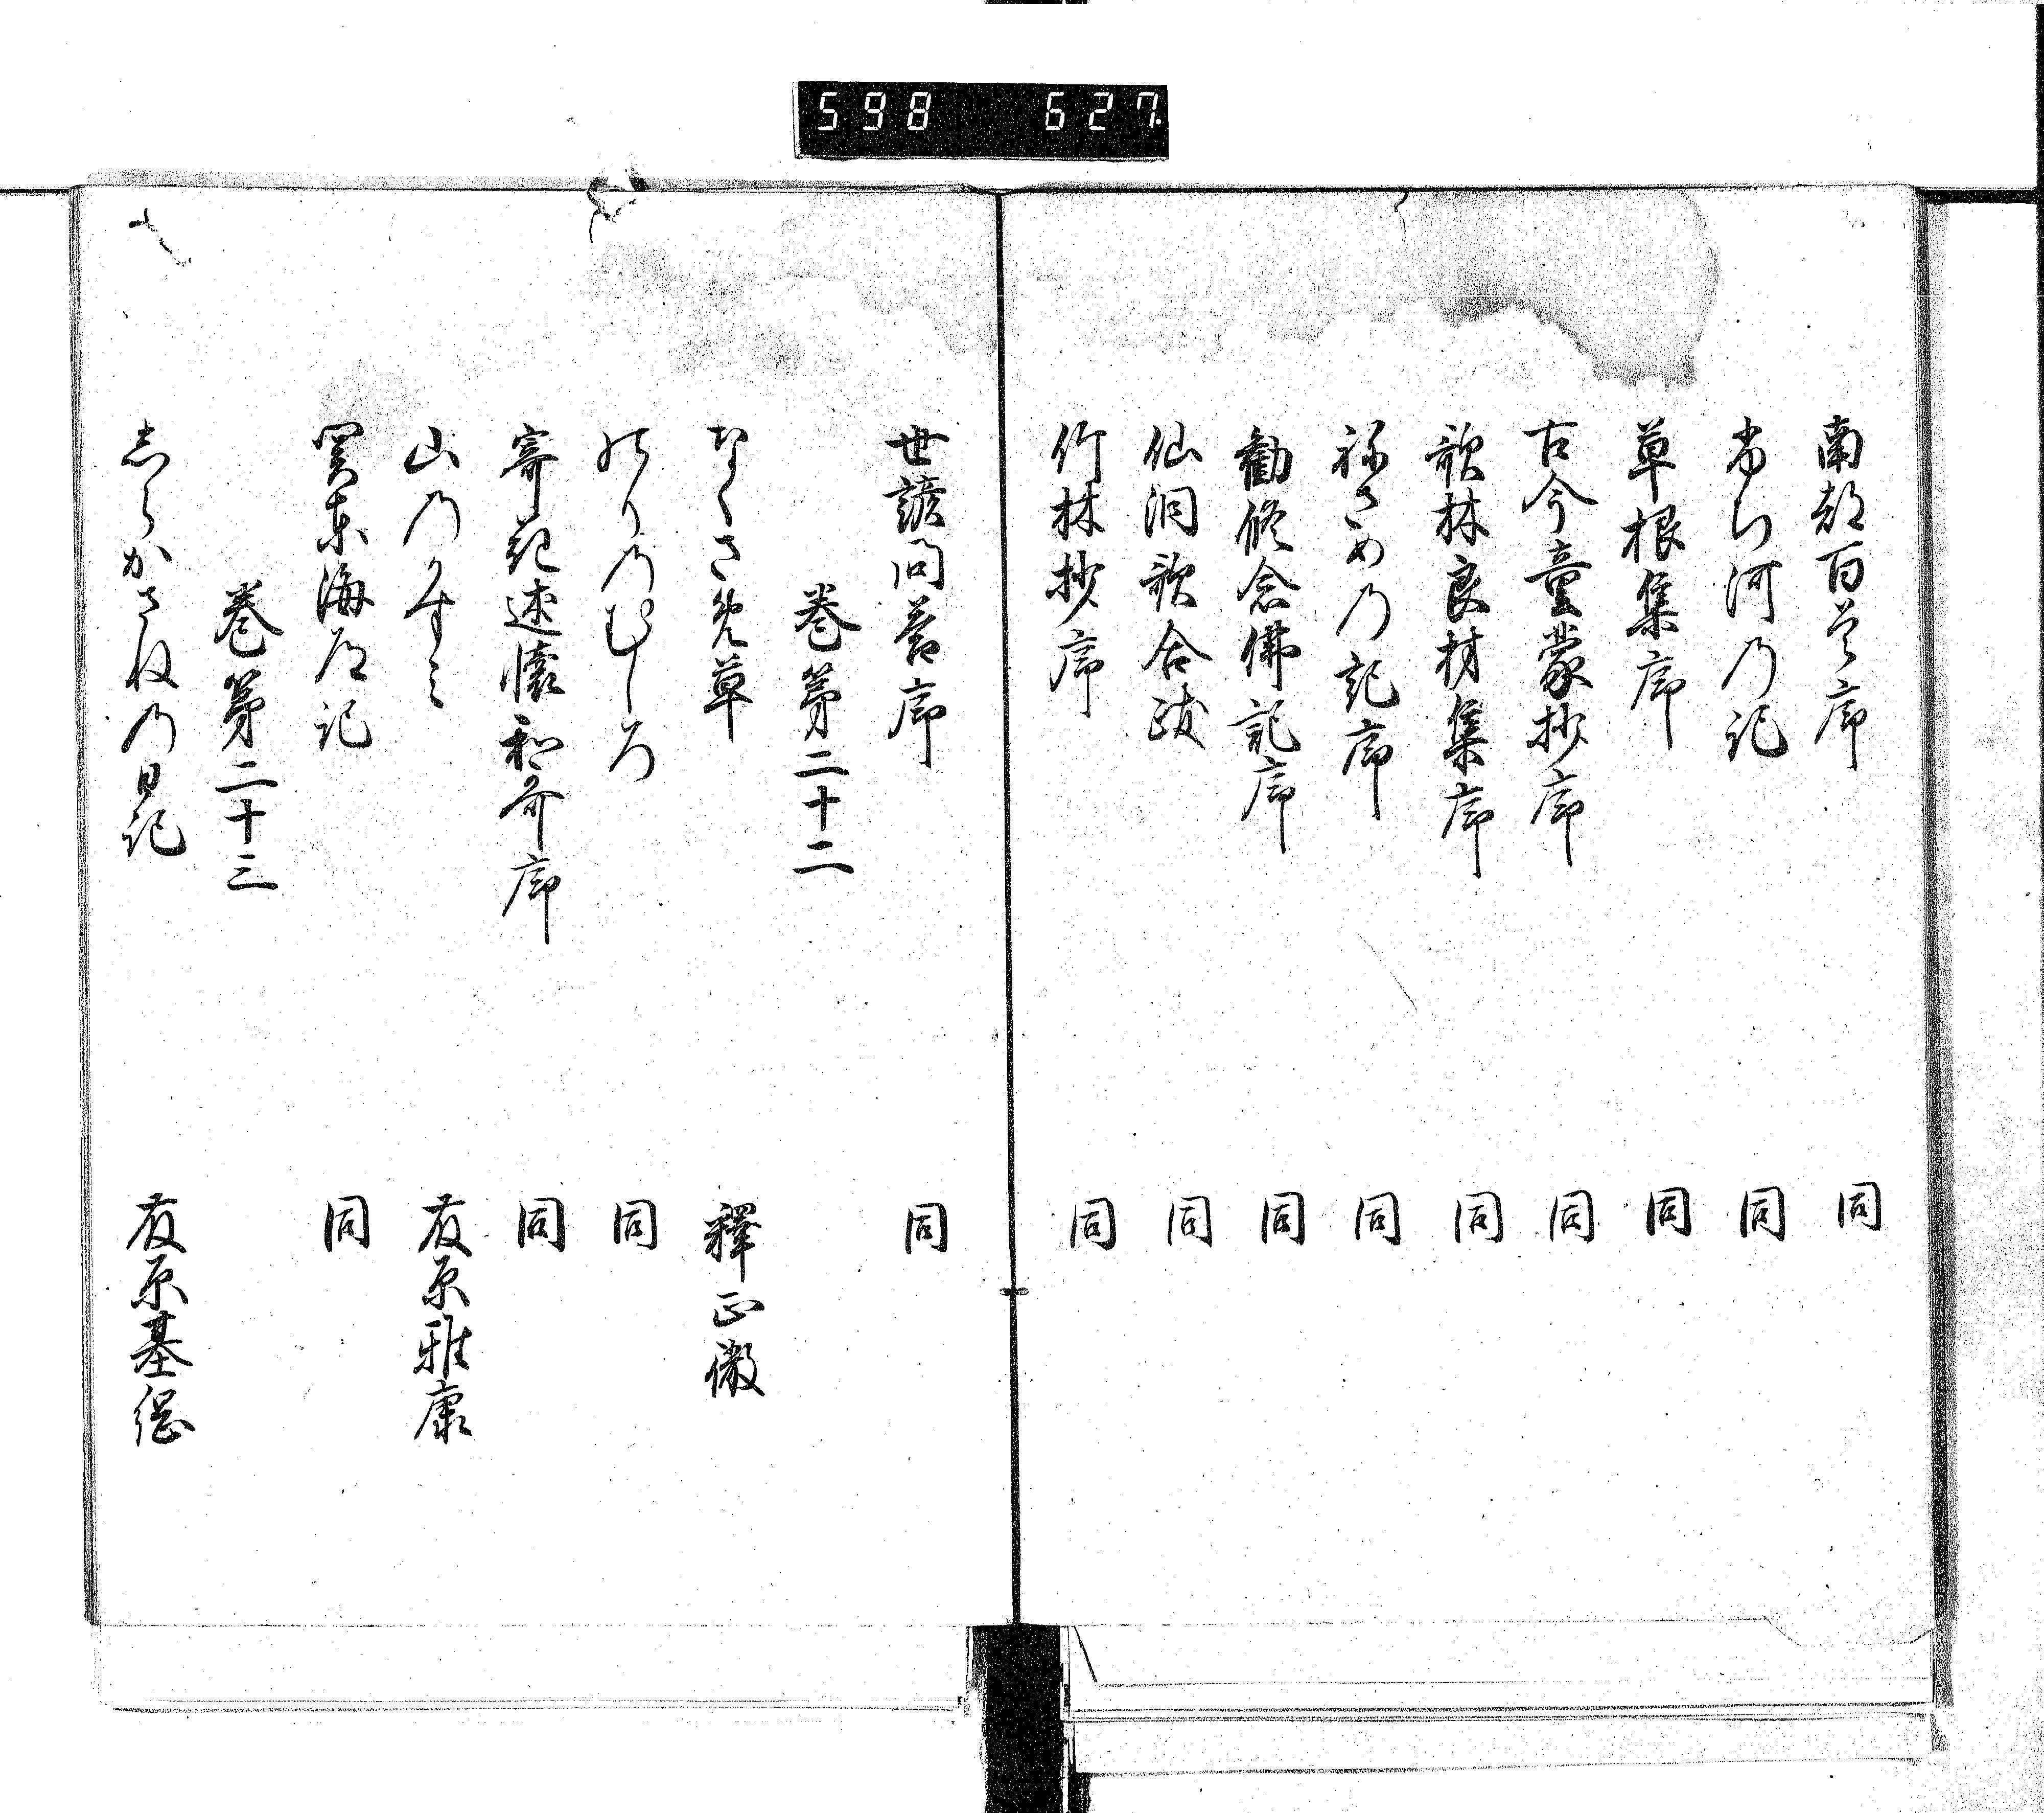 598 627
南都百首序 同
ふち河乃記 同
草根集序 同
古今童蒙抄序 同
歌林良材集序 同
祢さめ乃記序 同
勧修念佛記序 同
仙洞歌合跋 同
竹林抄序 同
世諺問答序 同
巻第二十二
なくさ免草 釋正徹
乃りのむしろ 同
寄花述懐和哥序 同
山乃かすミ 友原雅康
関東海道記 同
巻第二十三
志らかさね乃日記 友原基綱